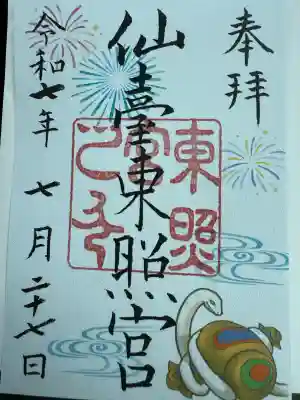 奉拝
仙臺東照宮
令和七年 七月二十七日
東照